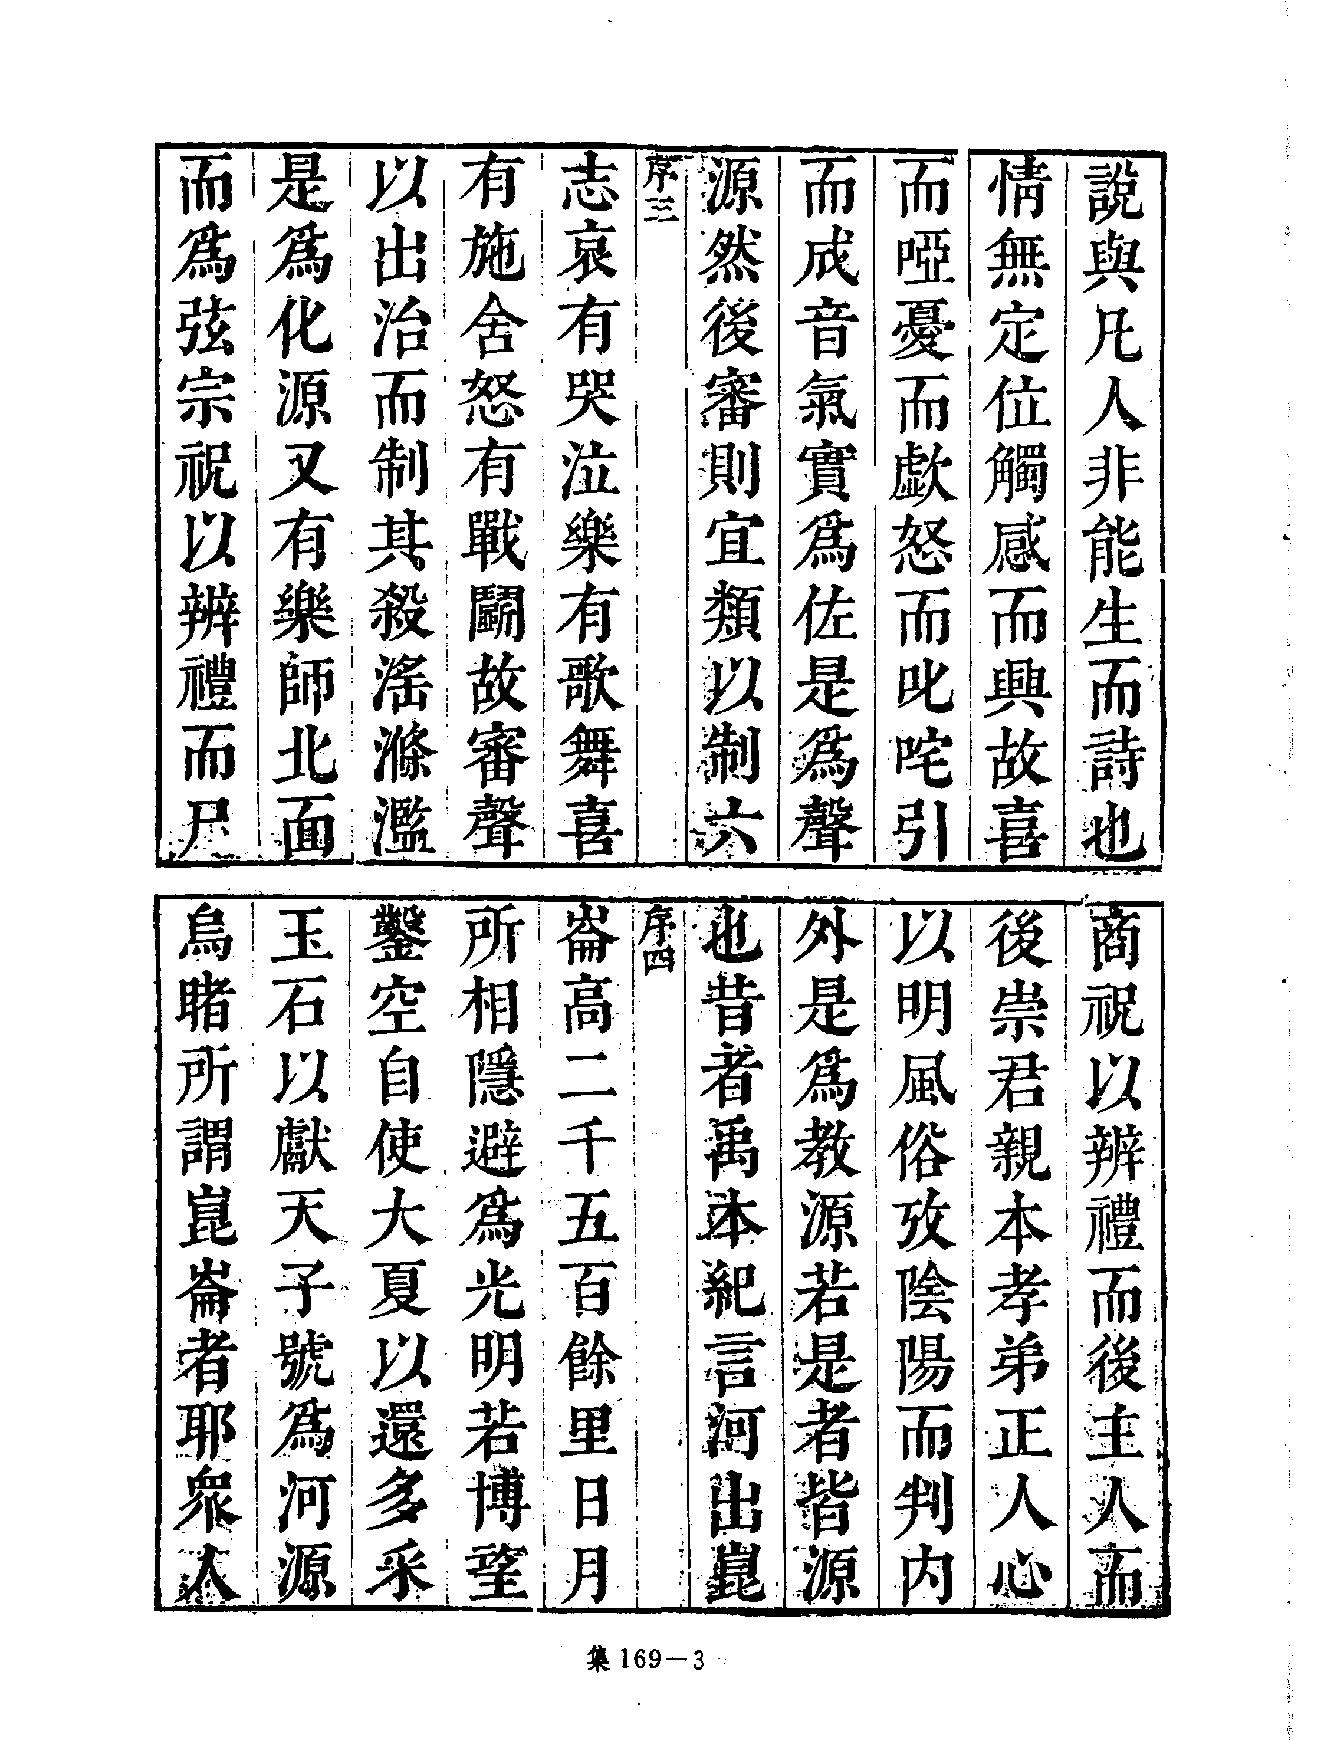 說與凡人非能生而詩也
情無定位觸感而興故喜
而啞憂而歔怒而叱咤引
而成音氣實爲佐是爲聲
源然後審則宜類以制六
序三
志哀有哭泣樂有歌舞喜
有施舍怒有戰鬭故審聲
以出治而制其殺滛滌濫
是爲化源又有樂師北面
而爲弦宗祝以辨禮而尸
商祝以辨禮而後主人而
後崇君親本孝弟正人心
以明風俗攷陰陽而判内
外是爲教源若是者皆源
也昔者禹本紀言河出崑
序四
崙高二千五百餘里日月
所相隱避爲光明若博望
鑿空自使大夏以還多采
玉石以獻天子號爲河源
烏睹所謂崑崙者耶衆人
集169－3